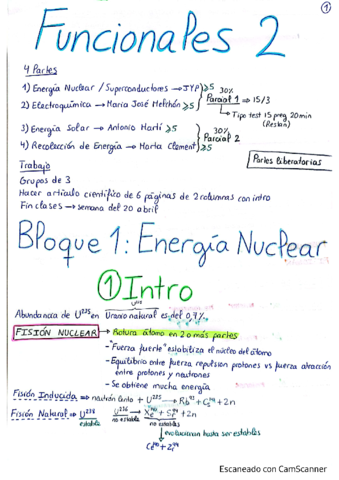 1
Funcionales 2
4 Partes
1) Energía Nuclear / Superconductores → JYP ≥5
2) Electroquímica → Maria José Melchón ≥5
30%
Parcial 1 ⇒ 15/3
Tipo test 15 preg 20min
(Restan)
3) Energía Solar → Antonio Martí ≥5
4) Recolección de Energía → Marta Clement ≥5
30%
Parcial 2
Partes liberatorias
Trabajo
Grupos de 3
Hacer artículo científico de 6 páginas de 2 columnas con intro
Fin clases → semana del 20 abril
Bloque 1: Energía Nuclear
1 Intro
Abundancia de U²³⁵ en Uranio natural es del 0,7%
FISIÓN NUCLEAR → Rotura átomo en 2 o más partes
- "Fuerza fuerte" estabiliza el núcleo del átomo
- Equilibrio entre fuerza repulsion protones vs fuerza atracción
entre protones y neutrones
- Se obtiene mucha energía
Fisión Inducida ⇒ neutrón lento + U²³⁵ → Rb + Cs + 2n
Fisión Natural ⇒ U U²³⁶ → Xe + Sr + 2n
estable no estable no estables
evolucionan hasta ser estables
Ce + Zr
Escaneado con CamScanner